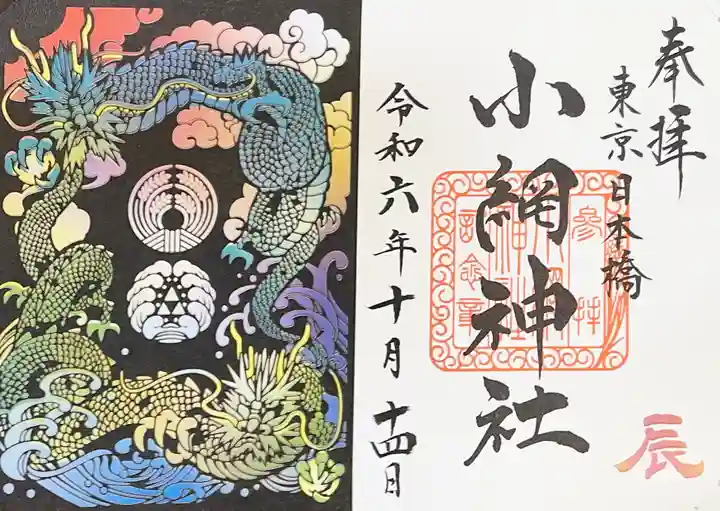 奉拝
東京日本橋
小網神社
参拝
記念章
令和六年十月十四日
辰